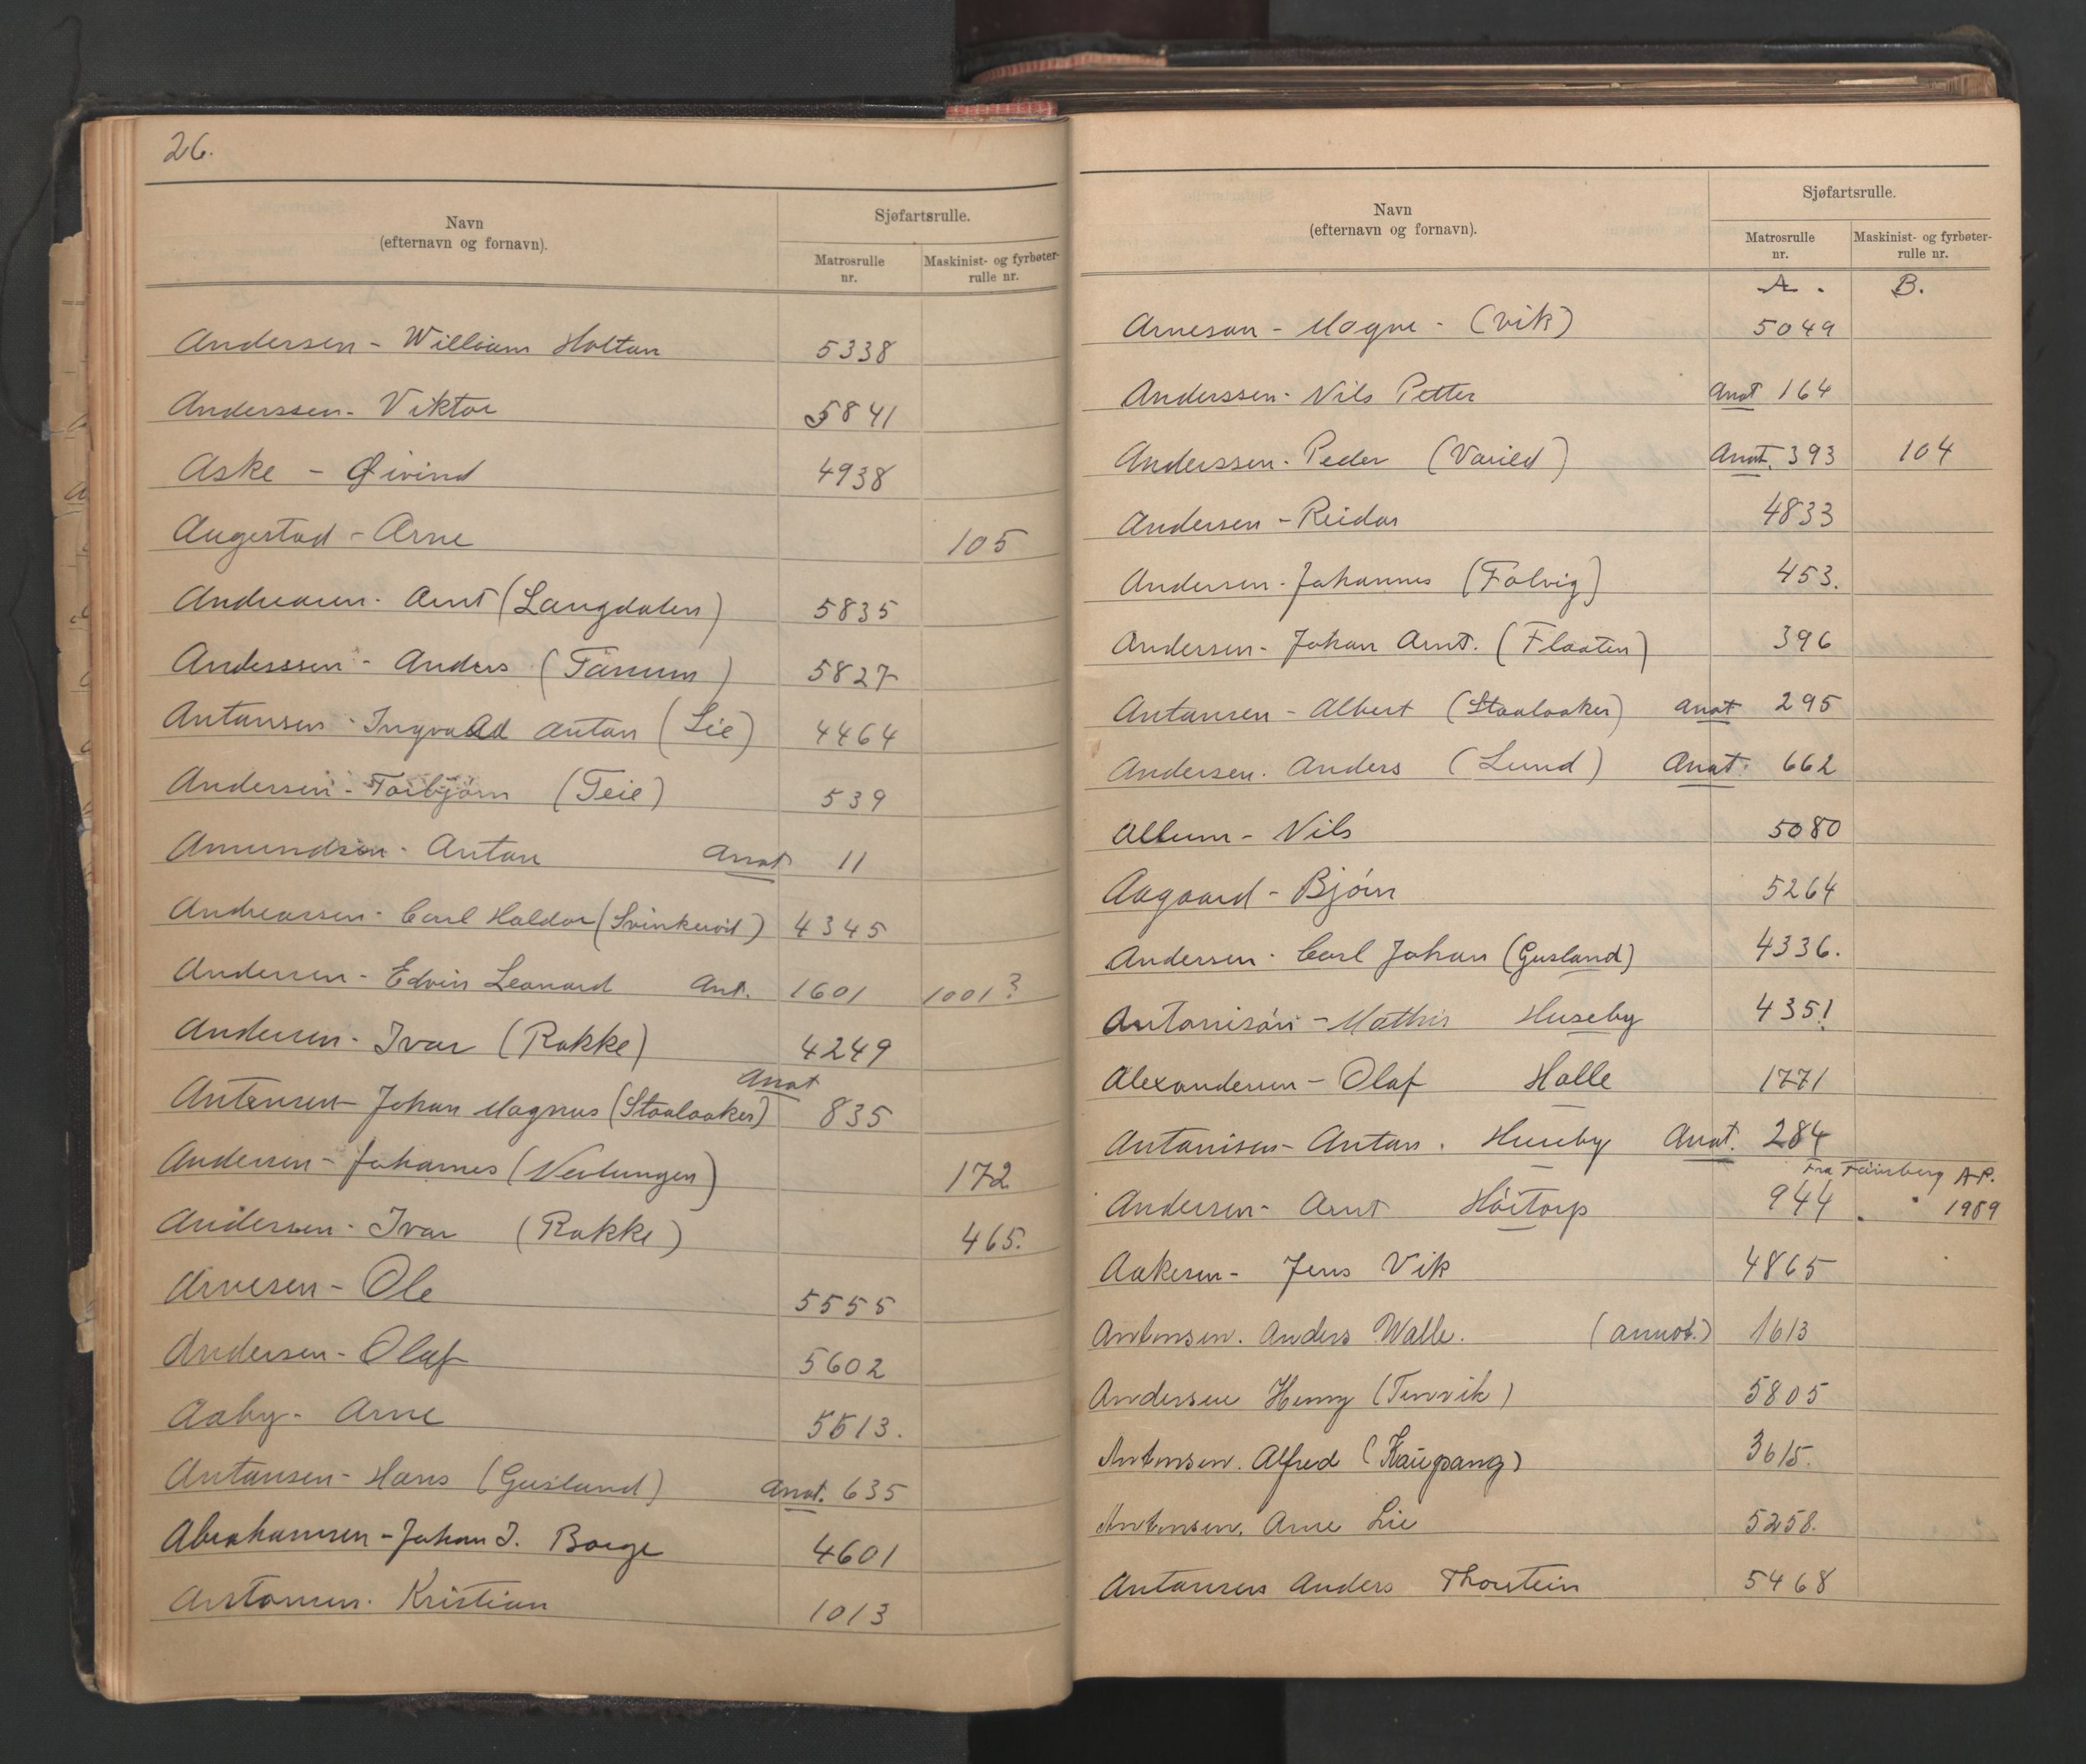 26.
Navn
(efternavn og fornavn).
Sjøfartsrulle.
Matrosrulle nr.
Maskinist- og fyrbøter-rulle nr.
Andersen - William Holtan 5338
Anderssen - Viktor 5841
Aske - Øivind 4938
Augestad - Arne 105
Andreasen - Arnt (Langdalen) 5835
Anderssen - Anders (Tanum) 5827
Antonsen - Ingvald Anton (Lie) 4464
Andersen - Torbjørn (Teie) 539
Amundsen - Anton Anot 11
Andreassen - Carl Haldor (Svinkevil) 4345
Andersen - Edvin Leonard Ant. 1601 1001?
Andersen - Ivar (Rakke) 4249
Antonsen - Johan Magnus (Staalaaker) Anot 835
Andersen - Johannes (Verlungen) 172
Andersen - Ivar (Rakke) 465.
Arnesen - Ole 5555
Andersen - Olaf 5602
Aaby - Arne 5513.
Antonsen - Hans (Gusland) Anot. 635
Abrahamsen - Johan J. Borge 4601
Antonsen. Kristian 1013
Navn
(efternavn og fornavn).
Sjøfartsrulle.
Matrosrulle nr.
Maskinist- og fyrbøter-rulle nr.
A. B.
Arneson - Magne - (Vik) 5049
Anderssen - Nils Petter Anot 164
Anderssen - Peder (Varild) Anot. 393 104
Andersen - Reidar 4833
Andersen - Johannes (Falvig) 453.
Andersen - Johan Arnt. (Flaaten) 396
Antonsen - Albert (Staalaaker) Anot 295
Andersen. Anders (Lund) Anot. 662
Album - Nils 5080
Aagaard - Bjørn 5264
Andersen - Carl Johan (Gusland) 4336.
Antonisen - Mathis Huseby 4351
Alexandersen - Olaf Halle 1771
Antonisen - Anton. Huseby Anot. 284
Fra Tønsberg A-R.
Andersen - Arnt Høitorp 944 " 1989
Aakesen - Jens Vik 4865
Antonsen. Anders Walle. (annot.) 1613
Andersen Henry (Tenvik) 5805
Antonsen. Alfred (Kaupang) 3615.
Antonsen. Arne Lie 5258.
Antonsen Anders Thorstein 5468